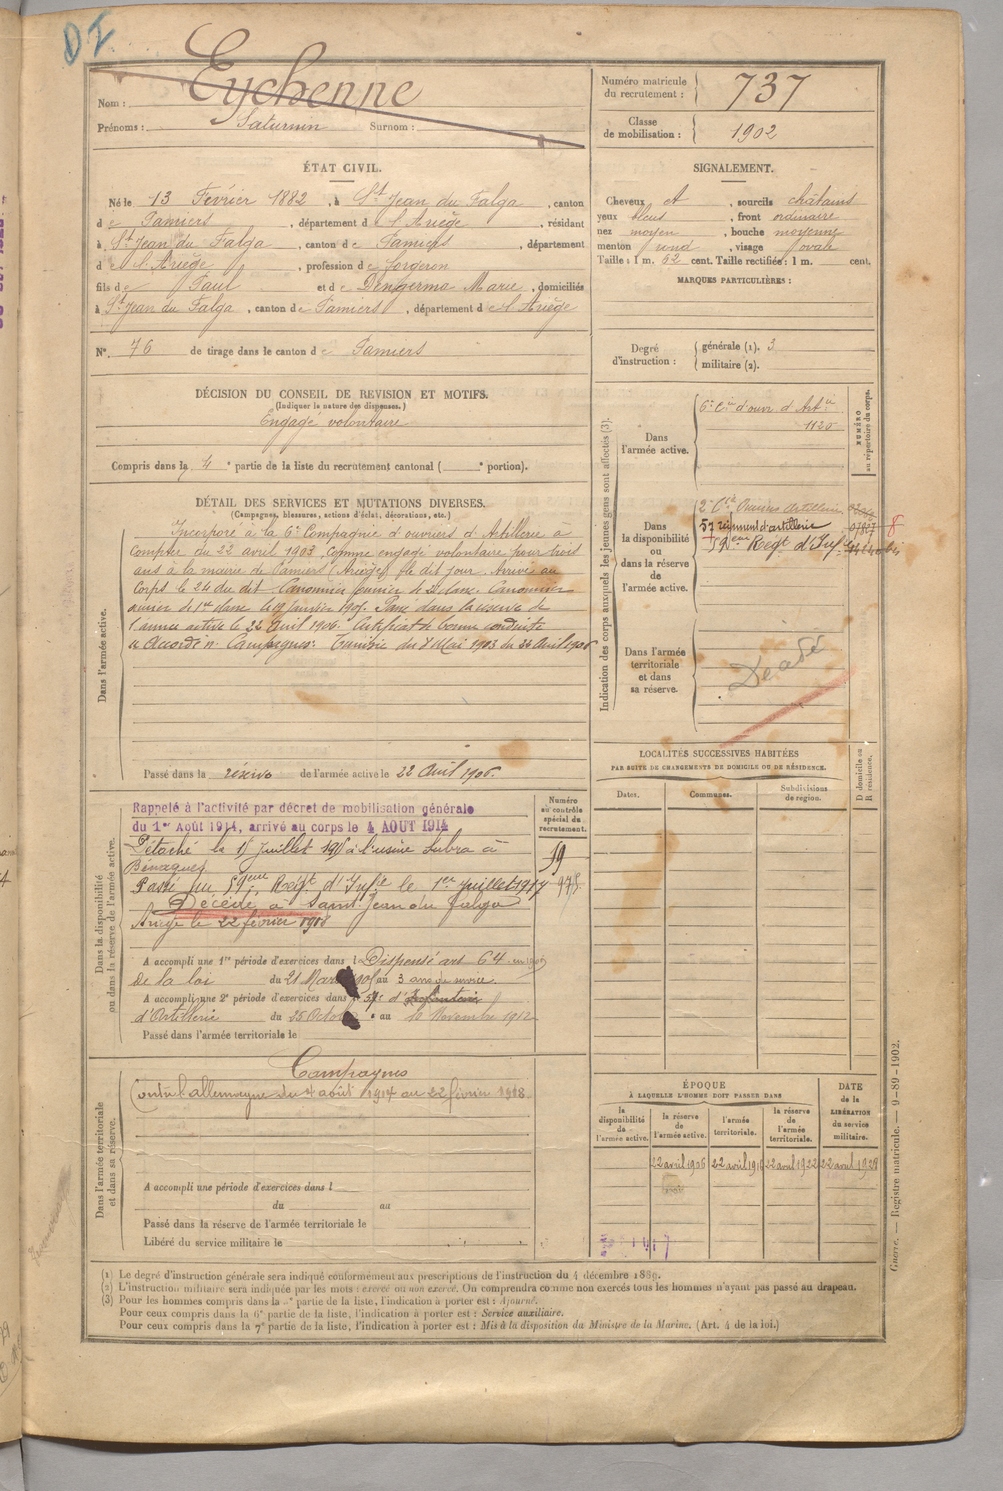 DI
Nom : Eychenne
Prénoms : Saturnin Surnom :
Numéro matricule du recrutement : 737
Classe de mobilisation : 1902
ÉTAT CIVIL.
Né le 13 Février 1882, à St Jean du Falga, canton
de Pamiers, département de l'Ariège, résidant
à St Jean du Falga, canton de Pamiers, département
de l'Ariège, profession de forgeron
fils de Paul et de Dengerma Marie, domiciliés
à St Jean du Falga, canton de Pamiers, département de l'Ariège
N°. 76 de tirage dans le canton de Pamiers
SIGNALEMENT.
Cheveux et, sourcils châtains
yeux bleus, front ordinaire
nez moyen, bouche moyenne
menton rond, visage ovale
Taille : 1 m. 62 cent. Taille rectifiée : 1 m. cent.
MARQUES PARTICULIÈRES :
Degré d'instruction : générale (1). 3
militaire (2).
DÉCISION DU CONSEIL DE REVISION ET MOTIFS.
(Indiquer la nature des dispenses.)
Engagé volontaire
Compris dans la 4e partie de la liste du recrutement cantonal ( e portion).
DÉTAIL DES SERVICES ET MUTATIONS DIVERSES.
(Campagnes, blessures, actions d'éclat, décorations, etc.)
Dans l'armée active.
Incorporé à la 6e Compagnie d'ouvriers d'Artillerie à
compter du 22 avril 1903, comme engagé volontaire pour trois
ans à la mairie de Pamiers (Ariège) le dit jour. Arrivé au
corps le 24 du dit. Canonnier ouvrier de 2e classe. Canonnier
ouvrier de 1re classe le 19 janvier 1905. Passé dans la réserve de
l'armée active le 22 Avril 1906. Certificat de bonne conduite
"Accordé". Campagnes : Tunisie du 8 Mai 1903 au 22 Avril 1906
Passé dans la réserve de l'armée active le 22 Avril 1906.
Indication des corps auxquels les jeunes gens sont affectés (3).
NUMÉRO au répertoire du corps.
Dans l'armée active.
6e Cie d'ouvr. d'Artie
1125
Dans la disponibilité ou dans la réserve de l'armée active.
2e Cie Ouvriers Artillerie
57 régiment d'artillerie 8
59eme Regt d'Infie
Dans l'armée territoriale et dans sa réserve.
Décédé
LOCALITÉS SUCCESSIVES HABITÉES
PAR SUITE DE CHANGEMENTS DE DOMICILE OU DE RÉSIDENCE.
Dates. Communes. Subdivisions de region. D domicile ou R résidence.
Dans la disponibilité ou dans la réserve de l'armée active.
Numéro au contrôle spécial du recrutement.
Rappelé à l'activité par décret de mobilisation générale
du 1er Août 1914, arrivé au corps le 4 AOUT 1914
Détaché le 15 Juillet 1915 à l'usine Lubra à
Bénagues
Passé au 59eme Regt d'Infie le 1er Juillet 1917
59
975
Décédé à Saint Jean du Falga
Ariège le 22 février 1918
A accompli une 1re période d'exercices dans l Dispensé art 64
de la loi du 21 Mars 1905 au 3 ans de service
A accompli une 2e période d'exercices dans le 57e d'Infanterie
d'Artillerie du 25 Octobre au 10 Novembre 1912
Passé dans l'armée territoriale le
Dans l'armée territoriale et dans sa réserve.
Campagnes
Contre l'allemagne du 4 août 1914 au 22 février 1918
A accompli une période d'exercices dans l
du au
Passé dans la réserve de l'armée territoriale le
Libéré du service militaire le
ÉPOQUE
À LAQUELLE L'HOMME DOIT PASSER DANS
la disponibilité de l'armée active. la réserve de l'armée active. l'armée territoriale. la réserve de l'armée territoriale. DATE de la LIBÉRATION du service militaire.
22 avril 1906 22 avril 1916 22 avril 1922 22 avril 1928
Guerre. — Registre matricule. — 9-89-1902.
(1) Le degré d'instruction générale sera indiqué conformément aux prescriptions de l'instruction du 4 décembre 1889.
(2) L'instruction militaire sera indiquée par les mots : exercé ou non exercé. On comprendra comme non exercés tous les hommes n'ayant pas passé au drapeau.
(3) Pour les hommes compris dans la e partie de la liste, l'indication à porter est : Ajourné.
Pour ceux compris dans la 6e partie de la liste, l'indication à porter est : Service auxiliaire.
Pour ceux compris dans la 7e partie de la liste, l'indication à porter est : Mis à la disposition du Ministre de la Marine. (Art. 4 de la loi.)